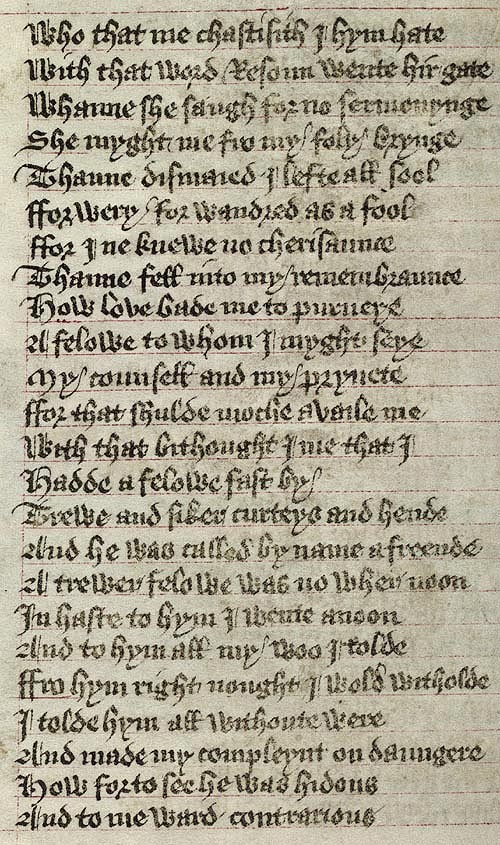 Who that me chastisith I hym hate
With that word Resoun wente hir gate
Whanne she saugh for no sermonynge
She myght me fro my foly brynge
Thanne dismaied I lefte all sool
ffor wery for wandred as a fool
ffor I ne knewe no cherisaunce
Thanne fell into my remembraunce
How love bade me to purveye
A felowe to whom I myght seye
My counsell and my pryvete
ffor that shulde moche availe me
With that bithought I me that I
Hadde a felowe fast by
Trewe and siker curteys and hende
And he was called by name a freende
A trewer felowe was no wher noon
In haste to hym I wente anoon
And to hym all my woo I tolde
ffro hym right nought I wold witholde
I tolde hym all withoute were
And made my compleynt on daungere
How forto see he was hidous
And to me ward contrarious